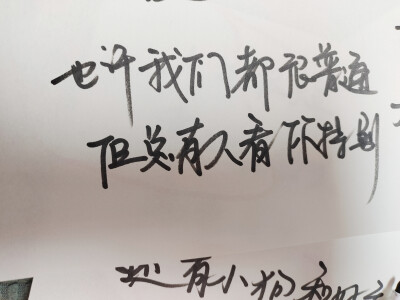 也许我们都很普通
但总有人看你特别
有小狗和